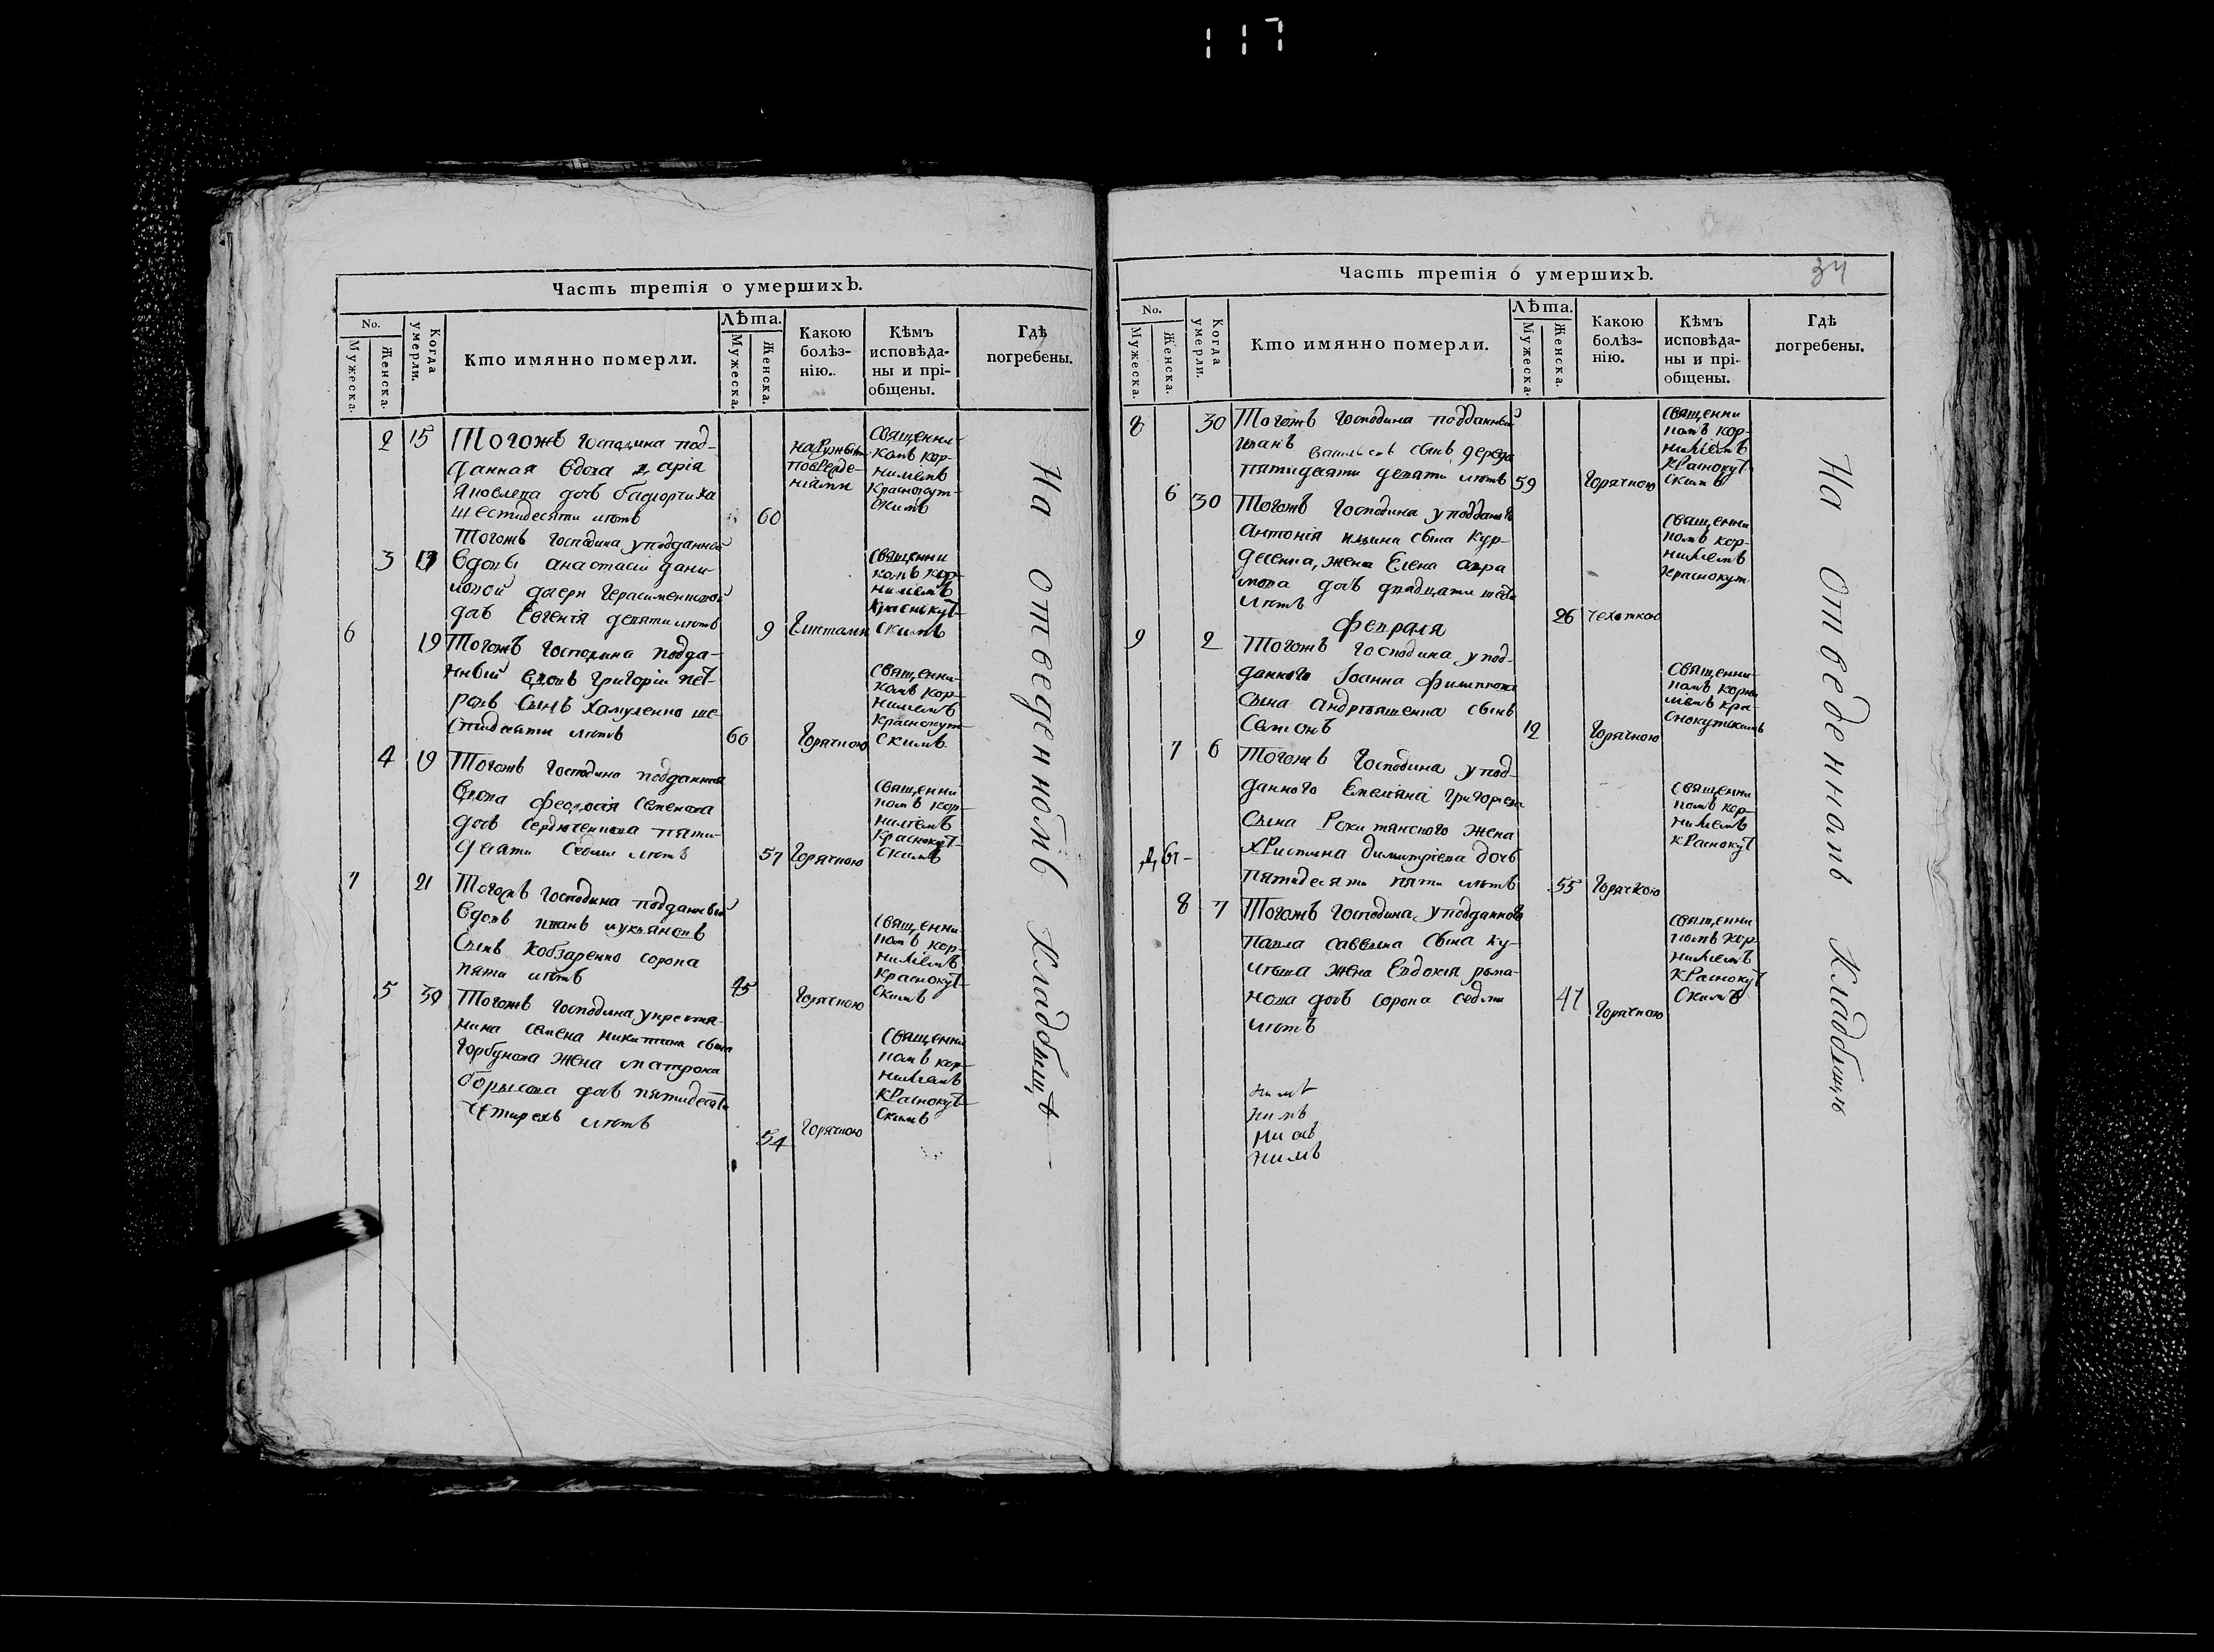 117
Часть третія о умершихъ.
No.
Мужеска.
Женска.
Когда умерли.
Кто имянно померли.
Лѣта.
Мужеска.
Женска.
Какою болѣз-
нію.
Кѣмъ
исповѣда-
ны и прі-
общены.
Гдѣ
погребены.
2 15 Тогожъ Господина под-
данная вдова Дарія
Яковлева дочь
шестидесяти лѣтъ 60
наружными
поврежде-
ніями
Священни-
комъ Кор-
ниліемъ
Краснокут-
скимъ
Тогожъ Господина у подданной
3 13 вдовы Анастасіи Дани-
ловой дщери Герасименковой
дочь Евгенія девяти лѣтъ 9 Глистами
Священни
комъ Кор-
ниліемъ
Краснокут-
скимъ
6 19 Тогожъ Господина подда-
нный вдовъ Григорій Пет-
ровъ сынъ Хамуленко ше-
стидесяти лѣтъ 60 Горячкою
Священни-
комъ Кор-
ниліемъ
Краснокут-
скимъ
4 19 Тогожъ Господина подданная
вдова Феодосія Семенова
дочь Сердюченкова пяти-
десяти седми лѣтъ 57 Горячкою
Священни
комъ Кор-
ниліемъ
Краснокут-
скимъ
7 21 Тогожъ Господина подданный
вдовъ Иванъ Лукьяновъ
сынъ Кобзаренко сорока
пяти лѣтъ 45 Горячкою
Священни
комъ Кор-
ниліемъ
Краснокут-
скимъ
5 30 Тогожъ Господина у крестья-
нина Семена Никитина сына
Горбунова жена Матрона
Борисова дочь пятидесяти
четырехъ лѣтъ 54 Горячкою
Священни
комъ Кор-
ниліемъ
Краснокут-
скимъ
На отведенномъ кладбищѣ
Часть третія о умершихъ.
34
No.
Мужеска.
Женска.
Когда умерли.
Кто имянно померли.
Лѣта.
Мужеска.
Женска.
Какою
болѣз-
нію.
Кѣмъ
исповѣда-
ны и прі-
общены.
Гдѣ
погребены.
8 30 Тогожъ Господина подданный
Иванъ Васильевъ сынъ Дереза
пятидесяти девяти лѣтъ 59 Горячкою
Священни
комъ Кор-
ниліемъ
Краснокут
скимъ
6 30 Тогожъ Господина у подданаго
Антонія Ильина сына Кур-
десенка, жена Елена
дочь двадцати шести
лѣтъ 26 чехоткою
Священни
комъ Кор-
ниліемъ
Краснокут
Февраля
9 2 Тогожъ Господина у под-
даннаго Іоанна Филиппова
сына Андріяшенка сынъ
Семіонъ 12 Горячкою
Священни-
комъ Корни
ліемъ Кра-
снокутскимъ
7 6 Тогожъ Господина у под-
данного Емеліяна Григорьева
сына жена
Христина Димитріева дочь
пятидесяти пяти лѣтъ 55 Горячкою
Священни
комъ Кор-
ниліемъ
Краснокут
8 7 Тогожъ Господина у подданнаго
Павла Саввина сына Ку-
лѣша жена Евдокія Рома-
нова дочь сорока седми
лѣтъ 47 Горячкою
Священни
комъ Кор-
ниліемъ
Краснокут
скимъ
нимъ
нимъ
На отведенномъ кладбищѣ